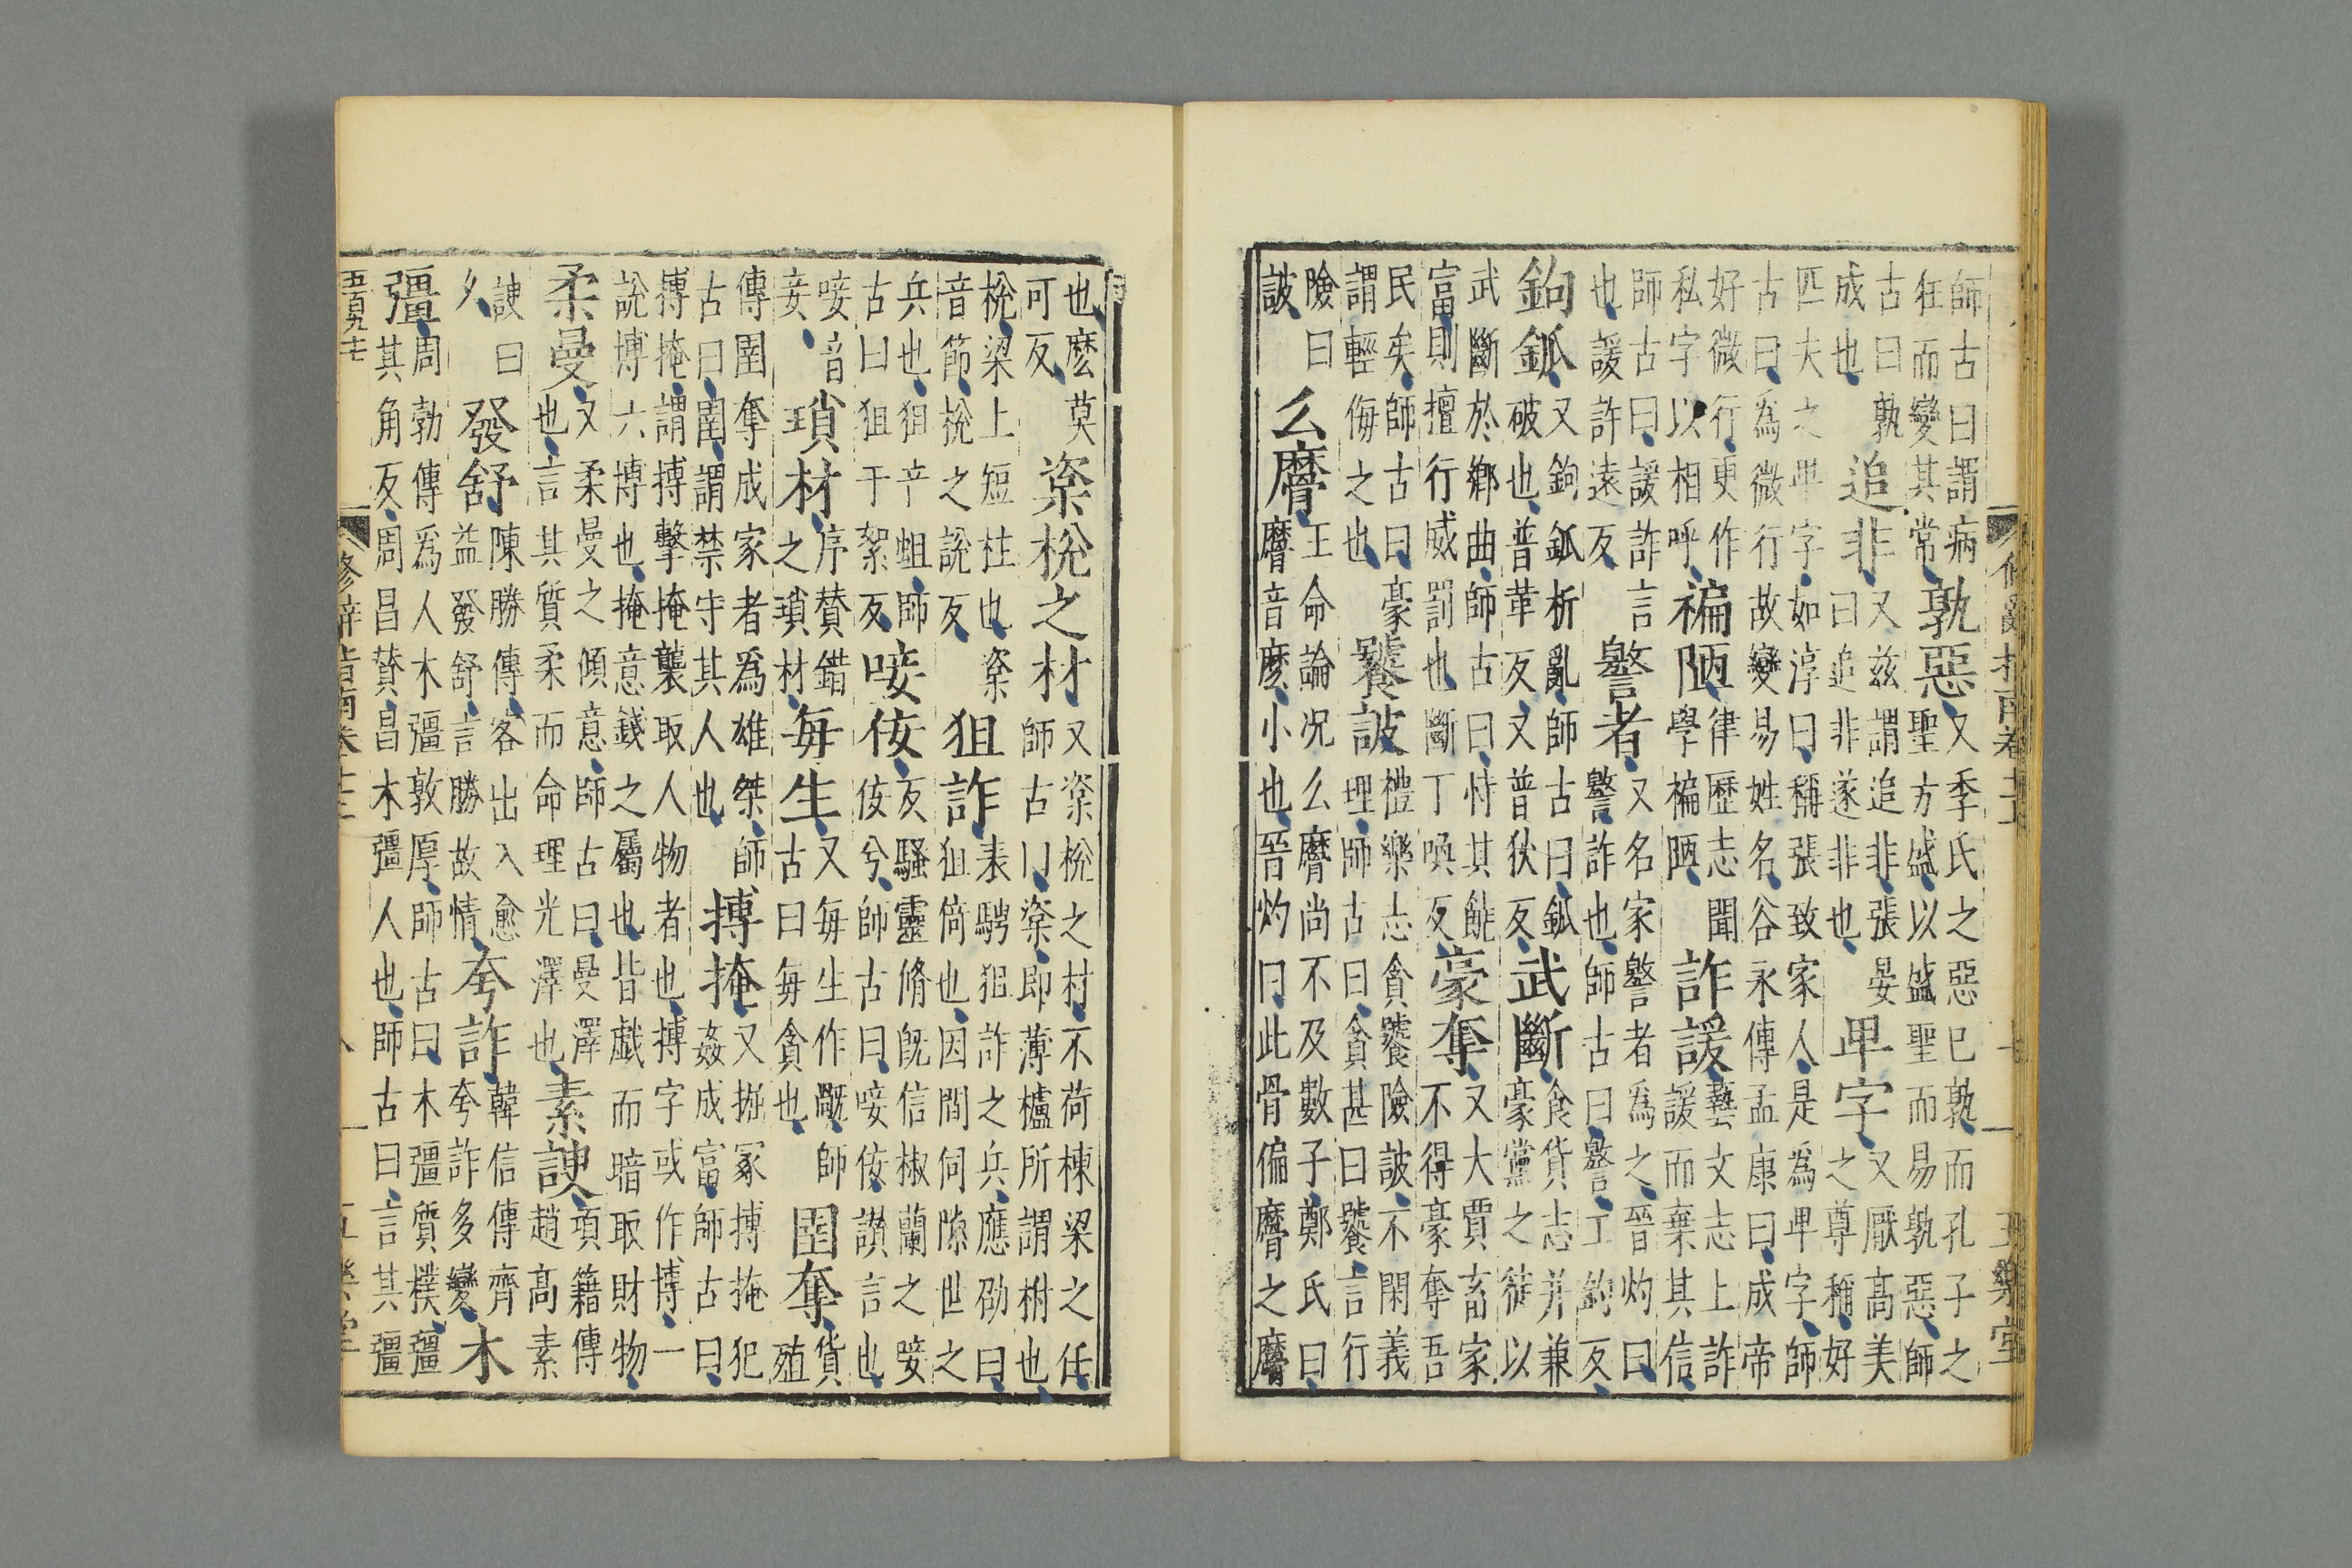 修辭指南卷十二 七 玉樂堂
師古曰謂病
狂而變其常
孰惡
又季氏之惡已孰而孔子之
聖方盛以盛聖而易孰惡師
古曰孰
成也
追非
又兹謂追非張晏
曰追非遂非也
卑字
又厭髙美
之尊稱好
匹夫之卑字如淳曰稱張致家人是爲卑字師
古曰爲微行故變易姓名谷永傳孟康曰成帝
好微行更作
私字以相呼
褊陋
律歷志聞
學褊陋
詐諼
藝文志上詐
諼而棄其信
師古曰諼詐言
也諼許遠反
譥者
又名家譥者爲之晉灼曰
譥訐也師古曰譥工釣反
鉤鈲
又鉤鈲析亂師古曰鈲
破也普革反又普狄反
武斷
食貨志并兼
豪黨之徒以
武斷於鄉曲師古曰恃其饒
富則擅行威罰也斷丁喚反
豪奪
又大賈畜家
不得豪奪吾
民矣師古曰豪
謂輕侮之也
饕詖
禮樂志貪饕險詖不閑義
理師古曰貪甚曰饕言行
險曰
詖
么䯢
王命論况么䯢尚不及數子鄭氏曰
䯢音麽小也晉灼曰此骨偏䯢之䯢
也麽莫
可反
楶梲之材
又楶梲之材不荷棟梁之任
師古曰楶即薄櫨所謂枡也
梲梁上短柱也楶
音節梲之說反
狙詐
表騁狙詐之兵應劭曰
狙伺也因間伺隙世之
兵也狙音蛆師
古曰狙千絮反
唼佞
反騷靈脩既信椒蘭之唼
佞兮師古曰唼佞譖言也
唼音
妾
瑣材
序贊錯
之瑣材
每生
又每生作慨師
古曰每貪也
圉奪
貨
殖
傳圉奪成家者爲雄桀師
古曰圉謂禁守其人也
搏掩
又掘冢搏掩犯
姦成富師古曰
搏掩謂搏擊掩襲取人物者也搏字或作博一
說博六博也掩意錢之屬也皆戲而暗取財物
柔曼
又柔曼之傾意師古曰曼澤
也言其質柔而命理光澤也
素諛
項籍傳
趙高素
諛曰
久
發舒
陳勝傳客出入愈
益發舒言勝故情
夸詐
韓信傳齊
夸詐多變
木
彊
周勃傳爲人木彊敦厚師古曰木彊質樸彊
其角反周昌贊昌木彊人也師古曰言其彊
修辭指南卷十二 八